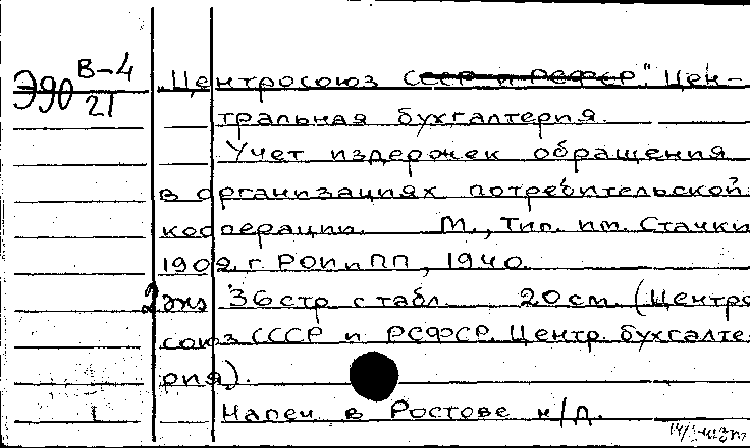 Э90 В-4
21
„Центросоюз СССР и РСФСР." Цен-
тральная бухгалтерия.
Учет издержек обращения
в организациях потребительской
кооперации. М., Тип. им. Стачки
1902 г РОИиПП, 1940.
2 экз 36 стр. с табл. 20 см. (Центро
союз СССР и РСФСР. Центр. бухгалте
рия).
Напеч в Ростове н/Д.
1